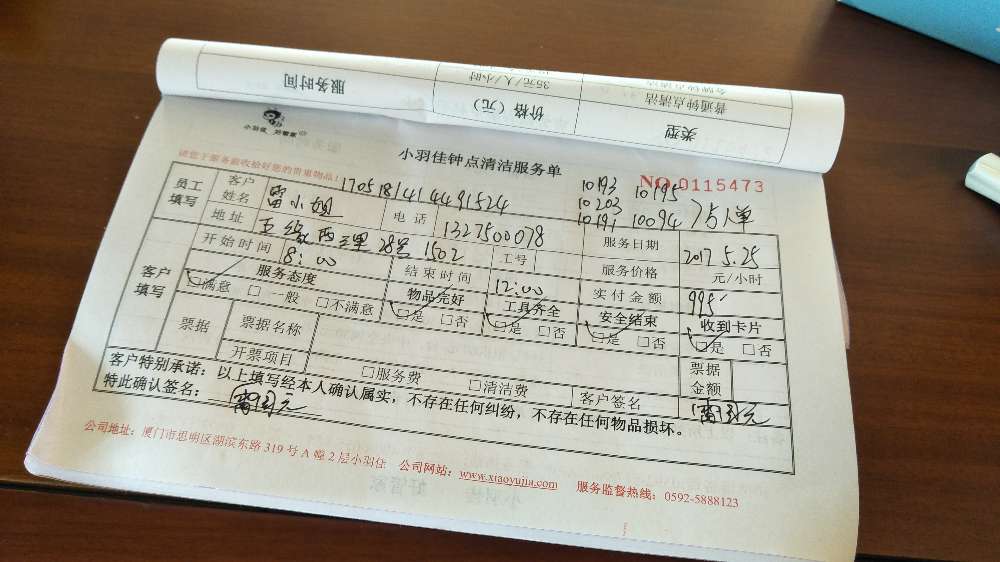 服务时间
35元/人/小时
价格（元）
普通钟点清洁
类型
小羽佳 好管家
小羽佳钟点清洁服务单
请您于服务前收拾好您的贵重物品！
NO.0115473
170518141 4491524
10193 10195
10203
10191 10094 7 5人单
员工填写
客户姓名 雷小姐 电话 1327500078 服务日期 2017 5.25
地址 五缘西三里 28号 1502 工号 服务价格 元/小时
客户填写
开始时间 8:00 结束时间 12:00 实付金额 995
服务态度 物品完好 工具齐全 安全结束 收到卡片
□满意 □一般 □不满意 □是 □否 □是 □否 □是 □否 □是 □否
票据 票据名称 票据金额
开票项目 □服务费 □清洁费 客户签名
客户特别承诺：以上填写经本人确认属实，不存在任何纠纷，不存在任何物品损坏。
特此确认签名：
公司地址：厦门市思明区湖滨东路 319 号 A 幢 2 层小羽佳 公司网站：www.xiaoyujia.com 服务监督热线：0592-5888123